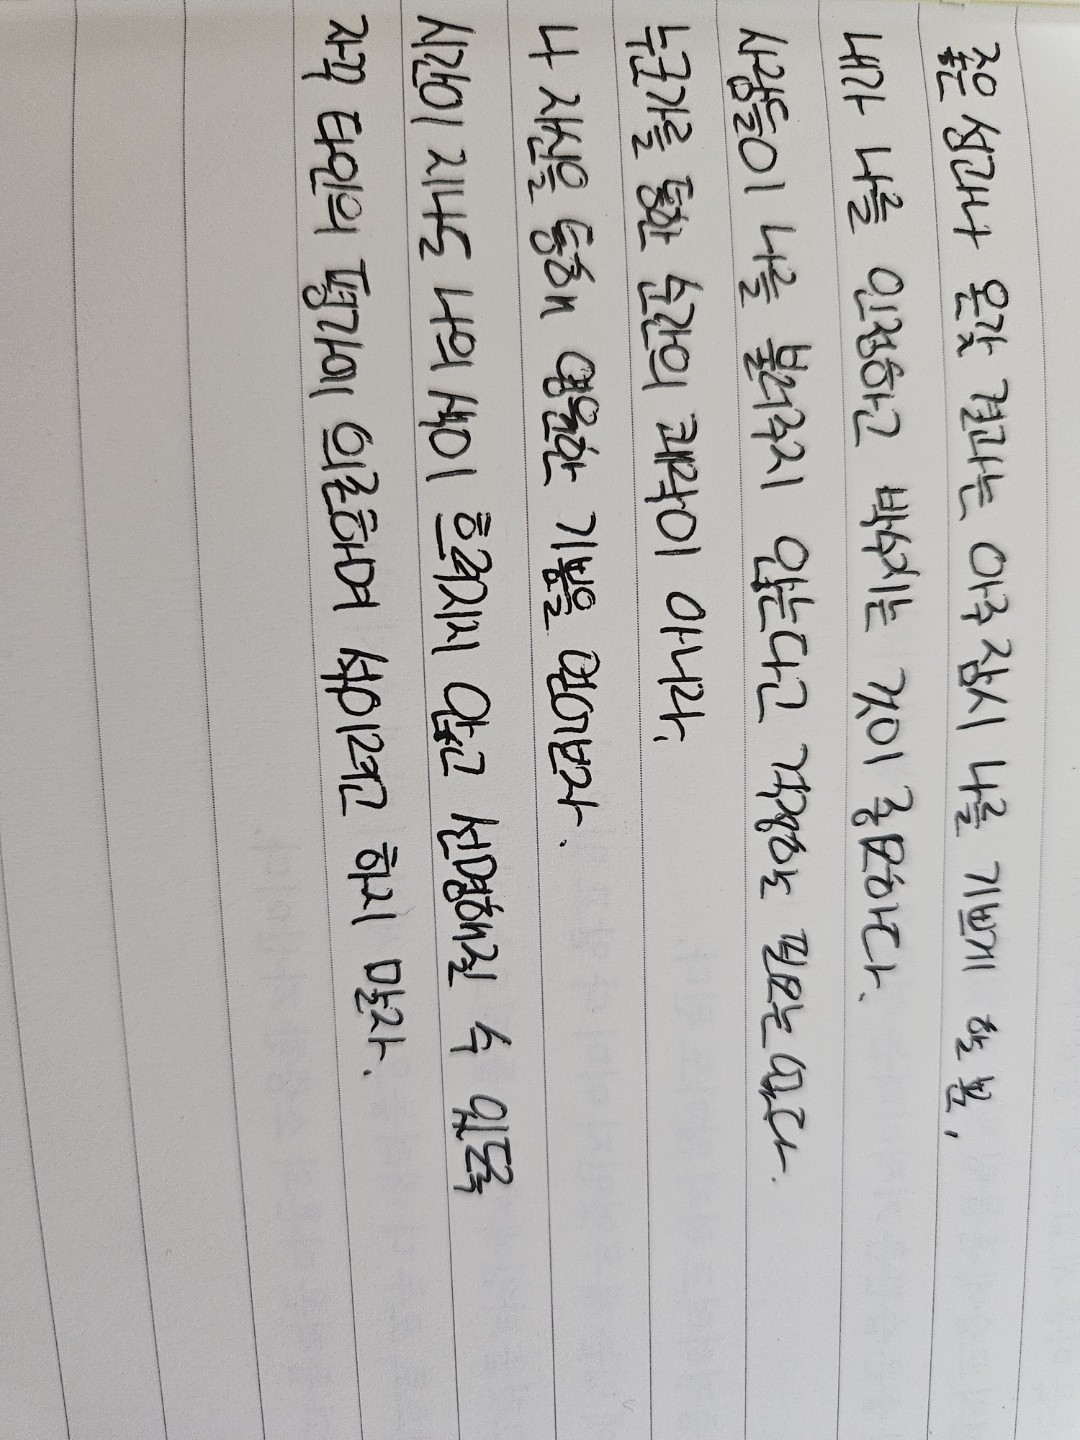 좋은 성과나 온갖 결과는 아주 잠시 나를 기쁘게 할 뿐,
내가 나를 인정하고 박수치는 것이 중요하다.
사람들이 나를 불러주지 않는다고 걱정하는 필요는 없다.
누군가를 통한 순간의 쾌락이 아니라,
나 자신을 통해 영원한 기쁨을 얻어보자.
시간이 지나도 나의 색이 흐려지지 않고 선명해질 수 있도록
자꾸 타인의 평가에 의존하며 섞이려고 하지 말자.